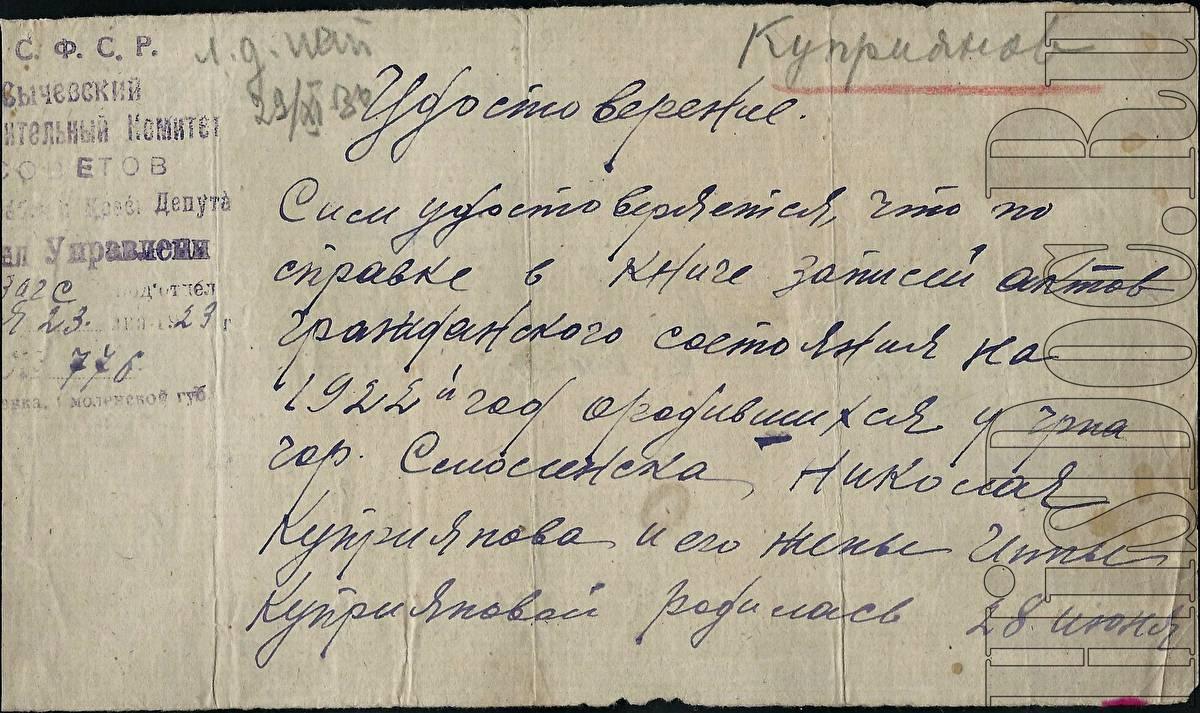 С. Ф. С. Р.
Сычевский
ительный Комитет
СОВЕТОВ
Депута
Управлени
Загс подотдел
23. 1923 г
776
Смоленской губ.
л. д. пап
23/XI
Куприянов
Удостоверение.
Сим удостоверяется, что по
справке в книге записей актов
гражданского состояния на
1922й год о родившихся у гр-на
гор. Смоленска, Николая
Куприянова и его жены Итты
Куприяновой родилась 28 июня
HiSDOC.RU